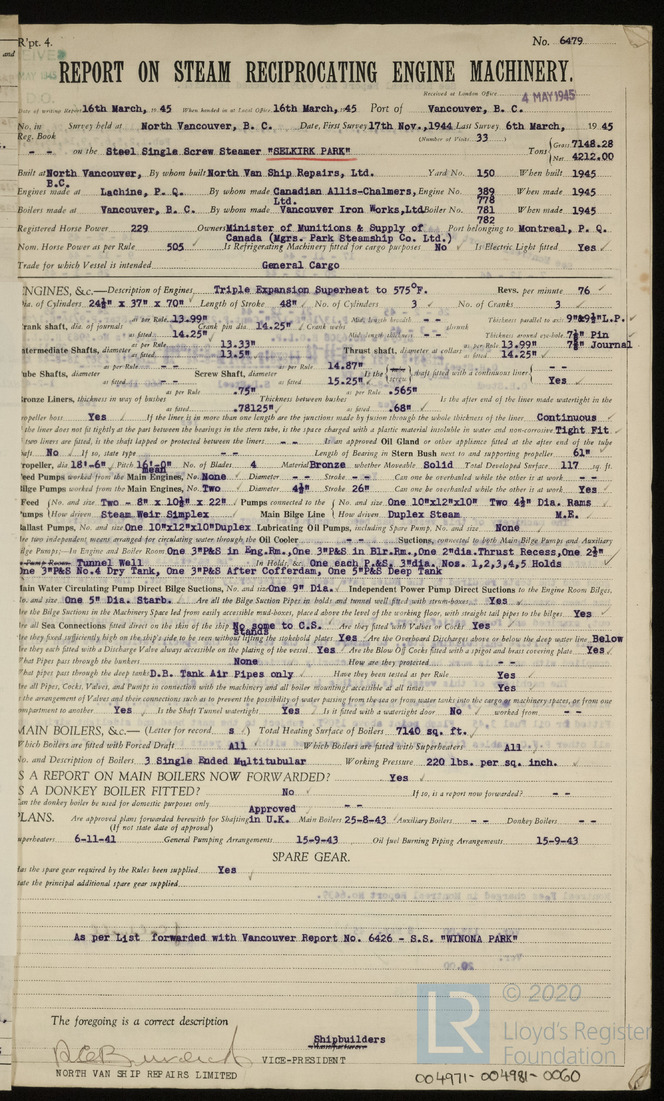 R'pt. 4. No. 6479
and
REPORT ON STEAM RECIPROCATING ENGINE MACHINERY.
Received at London Office 4 MAY 1945
Date of writing Report 16th March, 19 45 When handed in at Local Office 16th March, 19 45 Port of Vancouver, B. C.
No. in Survey held at North Vancouver, B. C. Date, First Survey 17th Nov., 1944 Last Survey 6th March, 19 45
Reg. Book (Number of Visits 33 )
- - on the Steel Single Screw Steamer "SELKIRK PARK" Tons { Gross 7148.28
Net 4212.00
Built at North Vancouver, B.C. By whom built North Van Ship Repairs, Ltd. Yard No. 150 When built 1945
Engines made at Lachine, P. Q. By whom made Canadian Allis-Chalmers, Ltd. Engine No. 389 When made 1945
778
Boilers made at Vancouver, B. C. By whom made Vancouver Iron Works, Ltd Boiler No. 781 When made 1945
782
Registered Horse Power 229 Owners Minister of Munitions & Supply of Canada (Mgrs. Park Steamship Co. Ltd.) Port belonging to Montreal, P. Q.
Nom. Horse Power as per Rule 505 Is Refrigerating Machinery fitted for cargo purposes No Is Electric Light fitted Yes
Trade for which Vessel is intended General Cargo
ENGINES, &c.—Description of Engines Triple Expansion Superheat to 575°F. Revs. per minute 76
Dia. of Cylinders 24½" x 37" x 70" Length of Stroke 48" No. of Cylinders 3 No. of Cranks 3
Crank shaft, dia. of journals as per Rule 13.99" as fitted 14.25" Crank pin dia. 14.25" Crank webs Mid. length breadth - - Mid. length thickness - - shrunk Thickness parallel to axis 9"&9½"L.P. Thickness around eye-hole 7⅝" Pin 7⅝" Journal
Intermediate Shafts, diameter as per Rule 13.33" as fitted 13.5" Thrust shaft, diameter at collars as per Rule 13.99" as fitted 14.25"
Tube Shafts, diameter as per Rule - - as fitted - - Screw Shaft, diameter as per Rule 14.87" as fitted 15.25" Is the { tube screw } shaft fitted with a continuous liner { - - Yes
Bronze Liners, thickness in way of bushes as per Rule .75" as fitted .78125" Thickness between bushes as per Rule .565" as fitted .68" Is the after end of the liner made watertight in the
propeller boss Yes If the liner is in more than one length are the junctions made by fusion through the whole thickness of the liner Continuous
If the liner does not fit tightly at the part between the bearings in the stern tube, is the space charged with a plastic material insoluble in water and non-corrosive Tight Fit
If two liners are fitted, is the shaft lapped or protected between the liners - - Is an approved Oil Gland or other appliance fitted at the after end of the tube
shaft No If so, state type - - Length of Bearing in Stern Bush next to and supporting propeller 61"
Propeller, dia 18'-6" Pitch 16'-0" mean No. of Blades 4 Material Bronze whether Moveable Solid Total Developed Surface 117 sq. ft.
Feed Pumps worked from the Main Engines, No. None Diameter - - Stroke - - Can one be overhauled while the other is at work - -
Bilge Pumps worked from the Main Engines, No. Two Diameter 4½" Stroke 26" Can one be overhauled while the other is at work Yes
Feed Pumps { No. and size Two - 8" x 10½" x 22" How driven Steam Weir Simplex Pumps connected to the Main Bilge Line { No. and size One 10"x12"x10" Two 4½" Dia. Rams
How driven Duplex Steam M.E.
Ballast Pumps, No. and size One 10"x12"x10"Duplex Lubricating Oil Pumps, including Spare Pump, No. and size None
Are two independent means arranged for circulating water through the Oil Cooler - - Suctions, connected to both Main Bilge Pumps and Auxiliary
Bilge Pumps:—In Engine and Boiler Room One 3"P&S in Eng.Rm.,One 3"P&S in Blr.Rm.,One 2"dia.Thrust Recess,One 2½"
Tunnel Well In Holds, &c. One each P.&S. 3"dia. Nos. 1,2,3,4,5 Holds
One 3"P&S No.4 Dry Tank, One 3"P&S After Cofferdam, One 5"P&S Deep Tank
Main Water Circulating Pump Direct Bilge Suctions, No. and size One 9" Dia. Independent Power Pump Direct Suctions to the Engine Room Bilges,
No. and size One 5" Dia. Starb. Are all the Bilge Suction Pipes in holds and tunnel well fitted with strum-boxes Yes
Are the Bilge Suctions in the Machinery Space led from easily accessible mud-boxes, placed above the level of the working floor, with straight tail pipes to the bilges Yes
Are all Sea Connections fitted direct on the skin of the ship No some to C.S. stands Are they fitted with Valves or Cocks Yes
Are they fixed sufficiently high on the ship's side to be seen without lifting the stokehold plates Yes Are the Overboard Discharges above or below the deep water line Below
Are they each fitted with a Discharge Valve always accessible on the plating of the vessel Yes Are the Blow Off Cocks fitted with a spigot and brass covering plate Yes
What Pipes pass through the bunkers None How are they protected - -
What pipes pass through the deep tanks D.B. Tank Air Pipes only Have they been tested as per Rule Yes
Are all Pipes, Cocks, Valves, and Pumps in connection with the machinery and all boiler mountings accessible at all times Yes
Is the arrangement of Valves and their connections such as to prevent the possibility of water passing from the sea or from water tanks into the cargo or machinery spaces, or from one
compartment to another Yes Is the Shaft Tunnel watertight Yes Is it fitted with a watertight door No worked from - -
MAIN BOILERS, &c.— (Letter for record s ) Total Heating Surface of Boilers 7140 sq. ft.
Which Boilers are fitted with Forced Draft All Which Boilers are fitted with Superheaters All
No. and Description of Boilers 3 Single Ended Multitubular Working Pressure 220 lbs. per sq. inch.
IS A REPORT ON MAIN BOILERS NOW FORWARDED? Yes
IS A DONKEY BOILER FITTED? No If so, is a report now forwarded? - -
Can the donkey boiler be used for domestic purposes only - -
PLANS. Are approved plans forwarded herewith for Shafting Approved in U.K. Main Boilers 25-8-43 Auxiliary Boilers - - Donkey Boilers - -
(If not state date of approval)
Superheaters 6-11-41 General Pumping Arrangements 15-9-43 Oil fuel Burning Piping Arrangements 15-9-43
SPARE GEAR.
Has the spare gear required by the Rules been supplied Yes
State the principal additional spare gear supplied
As per List forwarded with Vancouver Report No. 6426 - S.S. "WINONA PARK"
The foregoing is a correct description
Shipbuilders
VICE-PRESIDENT
NORTH VAN SHIP REPAIRS LIMITED
LR © 2020
Lloyd's Register
Foundation
004971-004981-0060